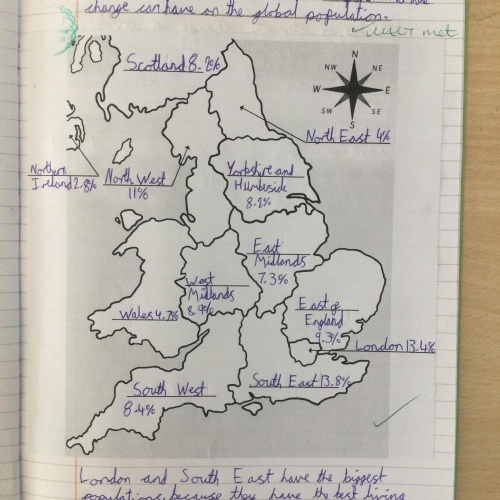 change can have on the global population.
met
Scotland 8.2%
N
NW
NE
W
E
SW
SE
S
North East 4%
Northern
Ireland 2.8%
North West
11%
Yorkshire and
Humbeside
8.2%
East
Midlands
7.3%
West
Midlands
8.9%
Wales 4.7%
East of
England
9.3%
London 13.4%
South West
8.4%
South East 13.8%
London and South East have the biggest
populations because they have the best living